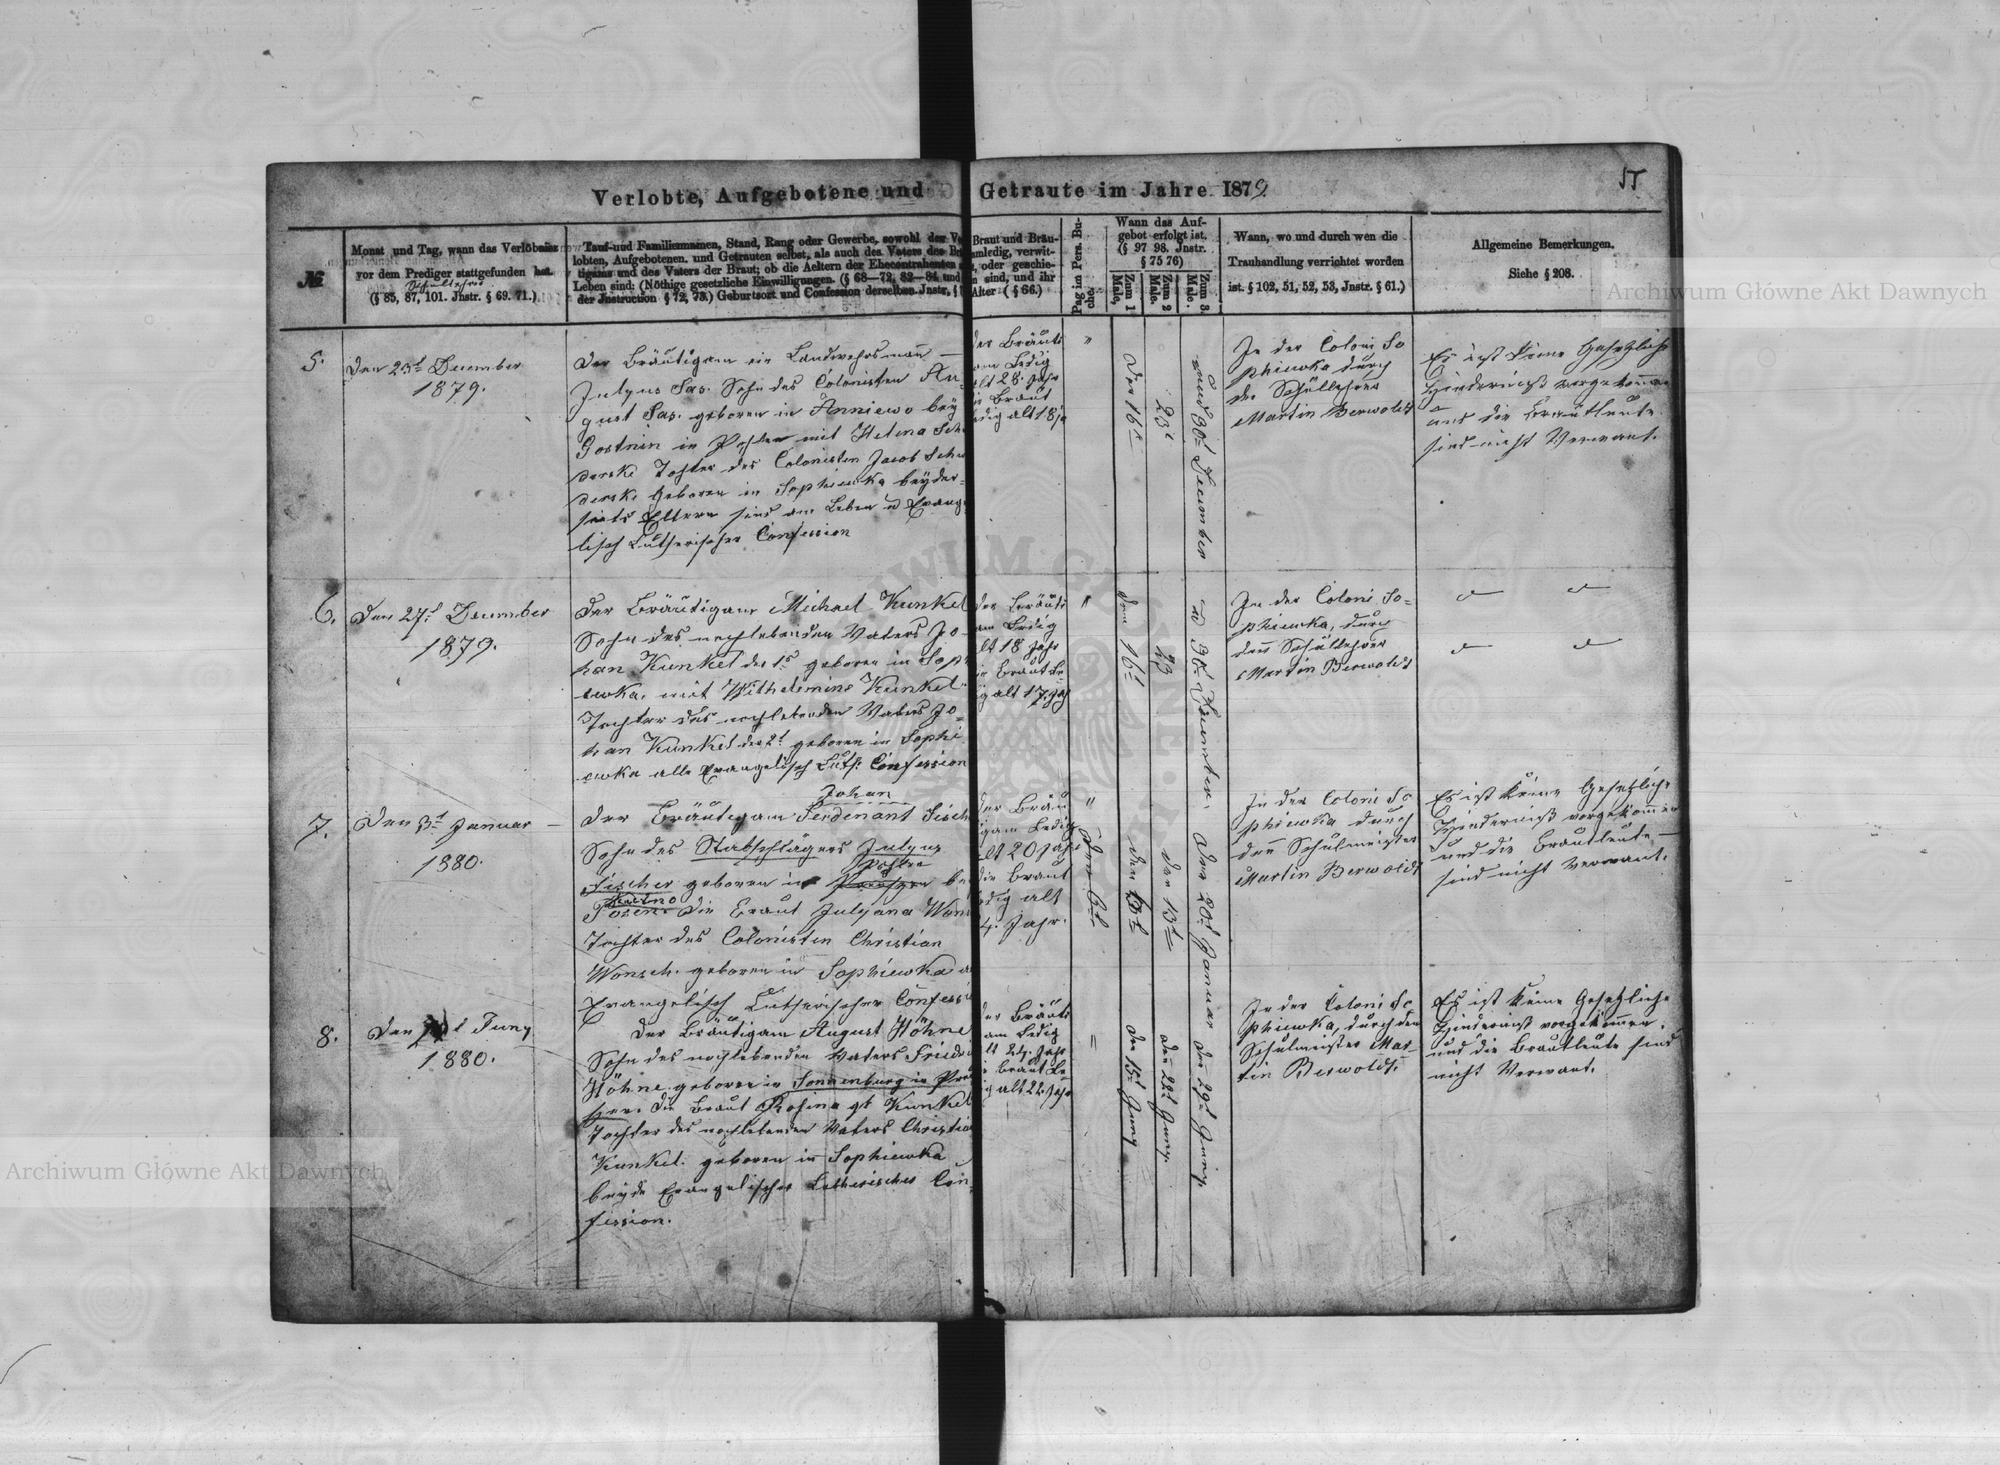 Verlobte, Aufgebotene und Getraute im Jahre 1879.
№
Monat und Tag, wann das Verlöbniss
vor dem Prediger stattgefunden hat.
Schullehrer
(§ 85, 87, 101. Jnstr. § 69. 71.)
Tauf-und Familiennamen, Stand, Rang oder Gewerbe, sowohl der Ver
lobten, Aufgebotenen und Getrauten selbst, als auch des Vaters des Bräu
tigams und des Vaters der Braut; ob die Aeltern der Ehecontrahenten
Leben sind; (Nöthige gesetzliche Einwilligungen. (§ 68—72, 82—84 und
der Jnstruction § 72, 73.) Geburtsort und Confession derselben. Jnstr. §
Braut und Bräu-
ledig, verwit-
oder geschie-
sind, und ihr
Alter ( § 66.)
Pag im Pers. Bu-
che.
Wann das Auf-
gebot erfolgt ist.
(§ 97 98. Jnstr.
§ 75 76)
Zum 1 Male.
Zum 2 Male.
Zum 3. Male.
Wann, wo und durch wen die
Trauhandlung verrichtet worden
ist. § 102, 51, 52, 53, Jnstr. § 61.)
Allgemeine Bemerkungen.
Siehe § 208.
5.
Den 23t December
1879.
Der Bräutigam ein Landwehrsmann
Julyus Sas. Sohn des Colonisten Au-
gust Sas. geboren in Anniewo bey
Gostnin in Pohlen mit Helena
Tochter des Colonisten Jacob
geboren in Sophiewka beyder-
seits Eltern sind am Leben u Evange
lisch Lutherischer Confession
der Bräuti
am Ledig
alt 28. Jahr
Braut
edig alt 18
"
Den 16t
23t
und 30t December
In der Coloni So
phiewka durch
den Schullehrer
Martin Berwoldt
Es ist keine Gesetzliche
Hinderniß vorgekommen
und die Brautleute
sind nicht Verwant.
6.
Den 27t December
1879.
Der Bräutigam Michael Kunkel
Sohn des nochlebenden Vaters Jo-
han Kunkel des 1t geboren in Soph
ewka, mit Wilhelmine Kunkel
Tochter des nochlebenden Vaters Jo-
han Kunkel des 2t geboren in Sophi
ewka alle Evangelisch Luth. Confession
der Bräuti
am Ledig
lt 18 Jahr
Braut Le
ig alt 17. Jah
"
den 16t
23
u 30t December.
In der Coloni So-
phiewka, durch
den Schullehrer
Martin Berwoldt
7.
Den 3t Januar
1880.
Johan
Der Bräutigam Ferdenant Fisch
Sohn des Stabschlägers Julyus
Pohlen
Fischer geboren in Preussen bei
Kutno
Posen. Die Braut Julyana Wons
Tochter des Colonisten Christian
Wonsch. geboren in Sophiewka a
Evangelisch Lutherischer Confessi
der Bräu
igam Ledig
alt 20 Jahr
die Braut
edig alt
Jahr.
"
den 6t
den 13t
den 20t Januar
In der Coloni So
phiewka durch
den Schulmeister
Martin Berwoldt
Es ist keine Gesetzliche
Hinderniß vorgekommen
und die Brautleute
sind nicht Verwant.
8.
Den Juny
1880.
Der Bräutigam August Höhne
Sohn des nochlebenden Vaters Friedr
Höhne geboren in Sonnenburg in Preu
ssen. Die Braut Rosina gb Kunkel
Tochter des nochlebenden Vaters Christia
Kunkel. geboren in Sophiewka
beyde Evangelischer Lutherischer Con
fession.
er Bräuti
am Ledig
lt 24. Jahr
Braut Le
ig alt 22. Jahr
den 15t Juny
den 22t Juny.
den 29t Juny.
In der Coloni So
phiewka, durch den
Schulmeister Mar
tin Berwoldt.
Es ist keine Gesetzliche
Hinderniß vorgekommen.
und die Brautleute sind
nicht Verwant.
Archiwum Główne Akt Dawnych
Archiwum Główne Akt Dawnych